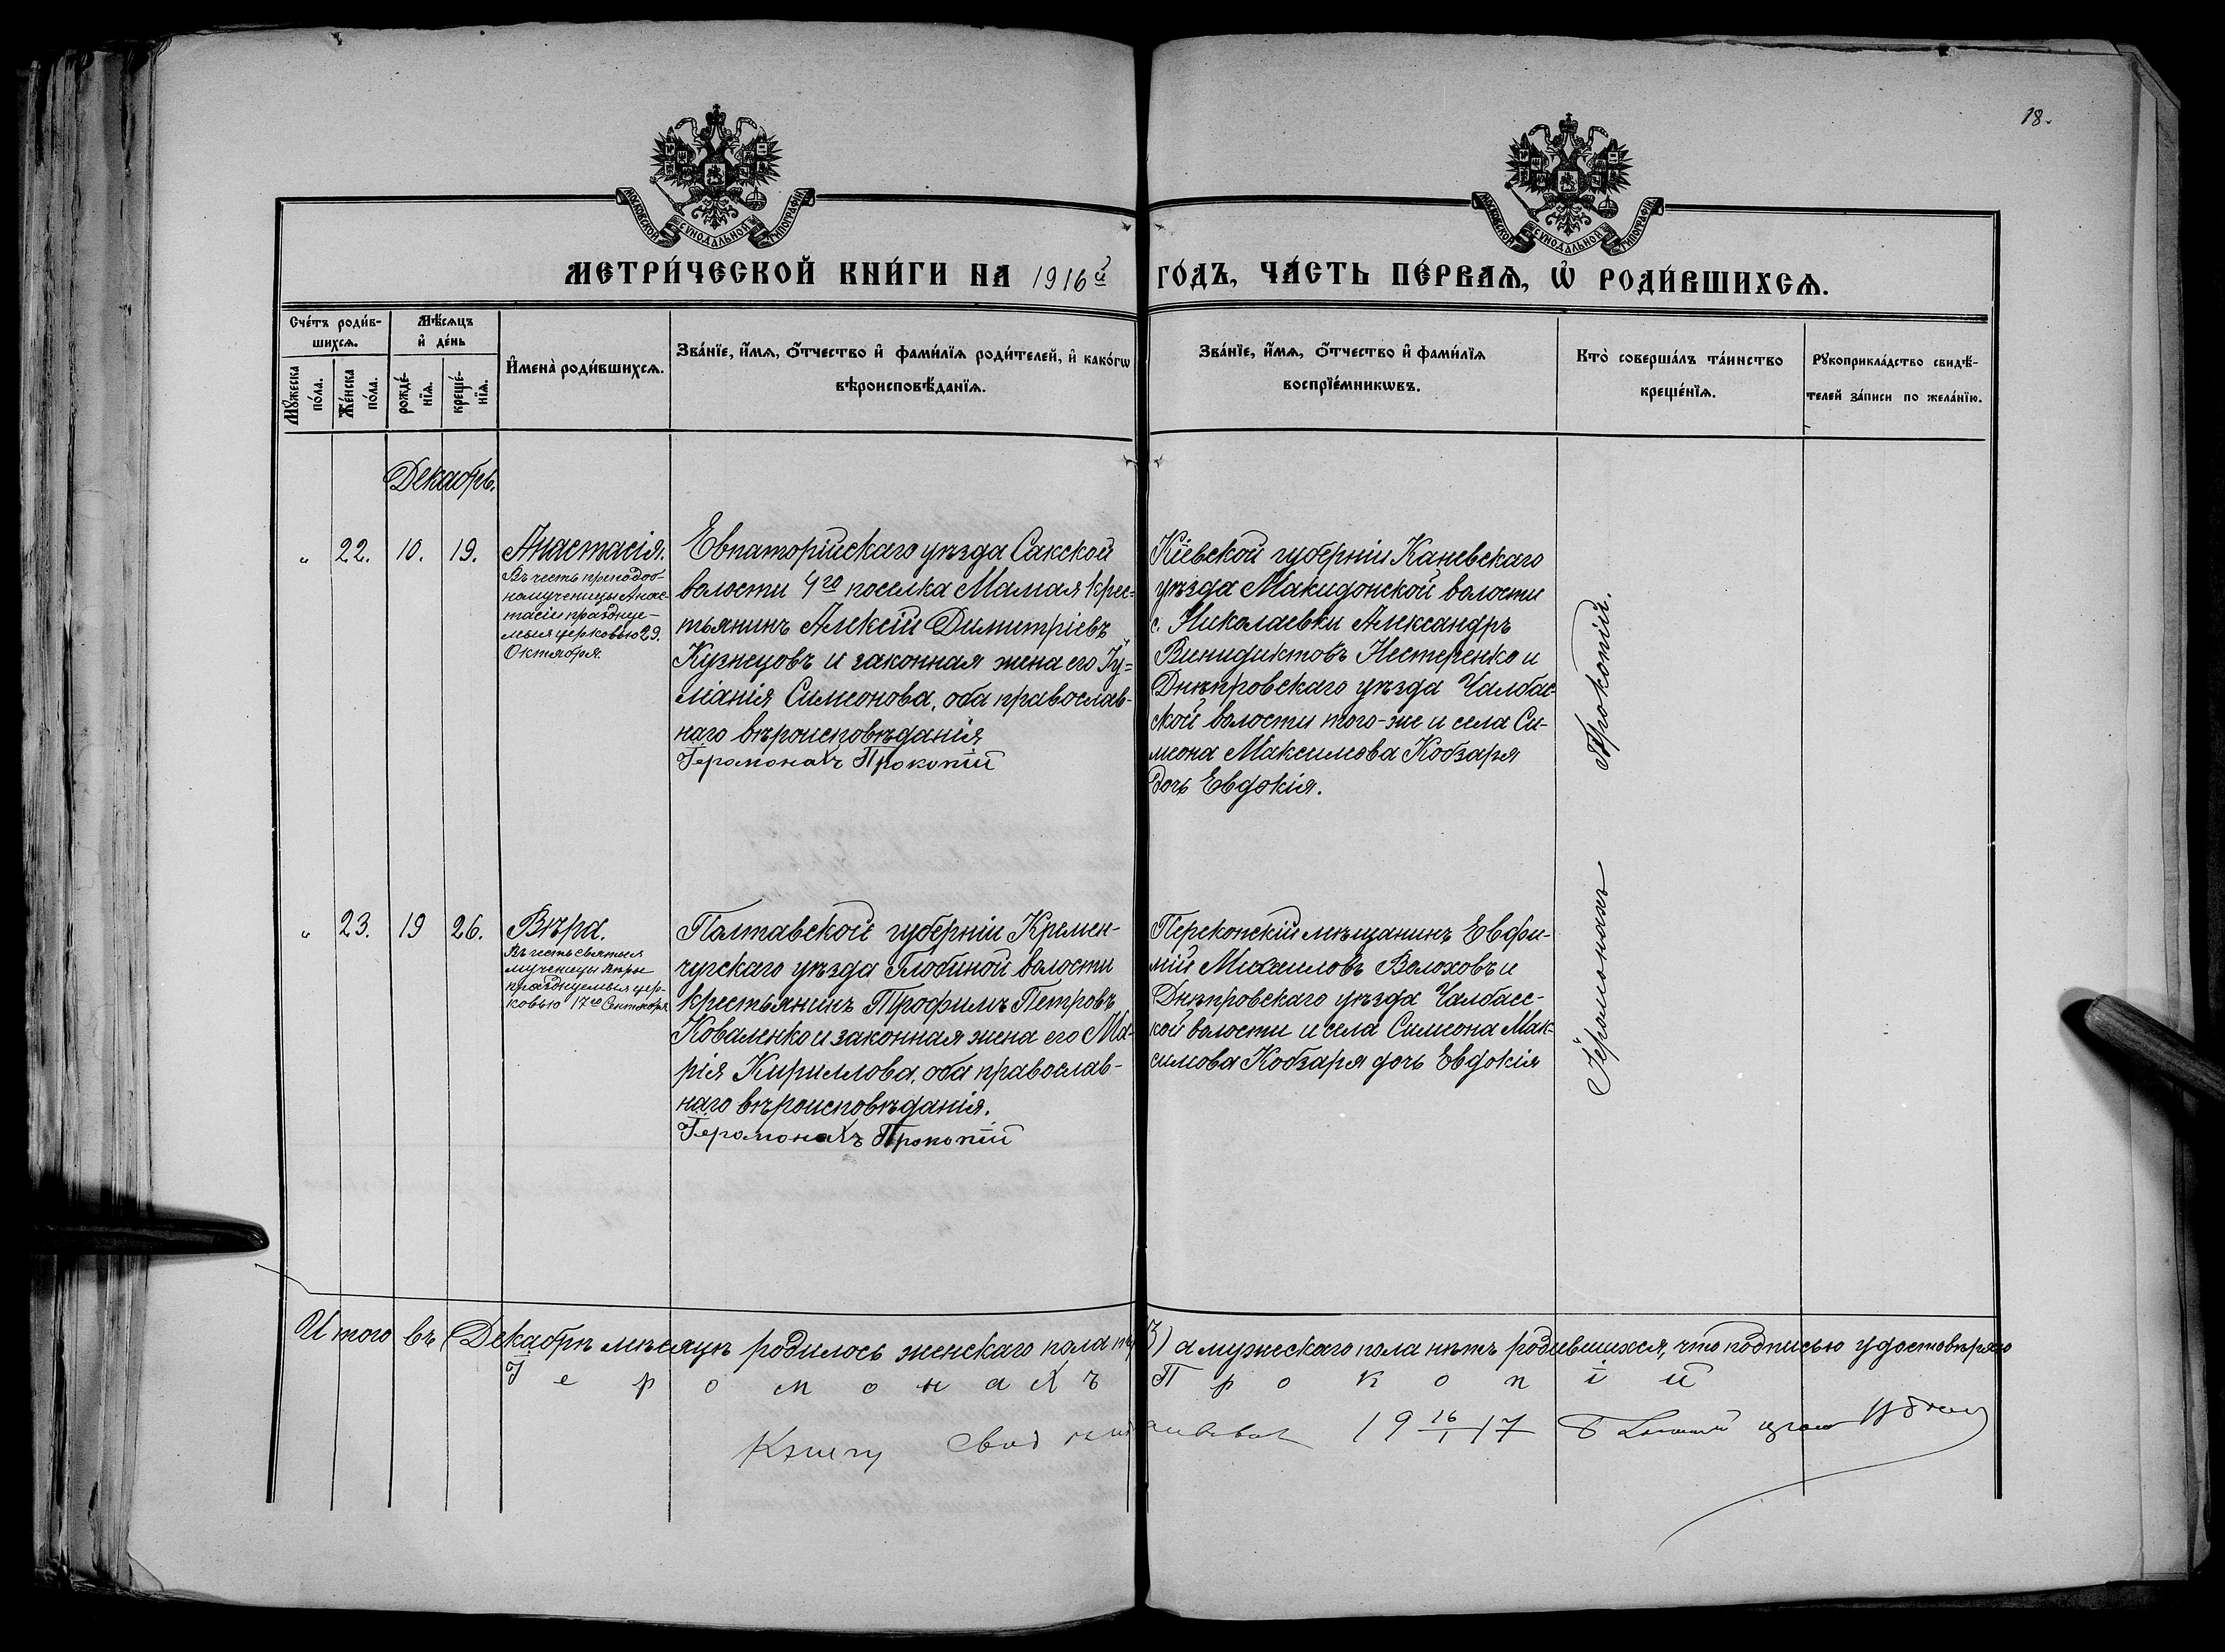 18.
МОСКОВСКОЙ СѴНОДАЛЬНОЙ ТИПОГРАФІИ
МОСКОВСКОЙ СѴНОДАЛЬНОЙ ТИПОГРАФІИ
МЕТРИ́ЧЕСКОЙ КНИ́ГИ НА 1916й ГО́ДЪ, ЧА́СТЬ ПЕ́РВАѦ, Ѡ҆ РОДИ́ВШИХСѦ.
Сче́тъ роди́в-
шихсѧ.
Мꙋ́жеска по́ла.
Же́нска по́ла.
Мѣ́сѧцъ
и҆ де́нь
рожде́-
нїѧ.
креще́-
нїѧ.
И҆мена̀ роди́вшихсѧ.
Зва́нїе, и҆́мѧ, ѻ҆́тчество и҆ фами́лїѧ роди́телей, и҆ како́гѡ
вѣроисповѣ́данїѧ.
Зва́нїе, и҆́мѧ, ѻ҆́тчество и҆ фами́лїѧ
воспрїе́мникѡвъ.
Кто̀ соверша́лъ та́инство
креще́нїѧ.
Рꙋкоприкла́дство свидѣ́-
телей за́писи по жела́нїю.
Декабрь.
„ 22. 10. 19.
Анастасія.
Въ честь преподоб-
номученицы Анас-
тасіи праздну-
емыя церковью 29.
Октября.
Евпаторійскаго уѣзда Сакской
волости 4го поселка Мамая крес=
тьянинъ Алексій Димитріевъ
Кузнецовъ и законная жена его Іу=
ліанія Симеонова, оба православ-
наго вѣроисповѣданія
Іеромонахъ Прокопій
Кіевской губерніи Каневскаго
уѣзда Македонской волости
с. Николаевки Александръ
Винидиктовъ Нестеренко и
Днѣпровскаго уѣзда Чалбас-
ской волости того-же и села Си-
меона Максимова Кобзаря
дочь Евдокія.
Іеромонахъ Прокопій.
„ 23. 19 26.
Вѣра.
Въ честь святыя
мученицы Вѣры
празднуемыя цер-
ковью 17го Сентября
Полтавской губерніи Кремен-
чугскаго уѣзда Глобиной волости
крестьянинъ Трофимъ Петровъ
Коваленко и законная жена его Ма-
рія Кириллова, оба православ-
наго вѣроисповѣданія.
Іеромонахъ Прокопій
Перекопскій мѣщанинъ Евфи-
мій Михаиловъ Волоховъ и
Днѣпровскаго уѣзда Чалбасс-
кой волости и села Симеона Мак-
симова Кобзаря дочь Евдокія
Итого въ Декабрѣ мѣсяцѣ родилось женскаго пола а мужескаго пола нѣтъ родившихся, что подписью удостовѣряю
Іеромонахъ Прокопій
Книгу 19 16/1 17